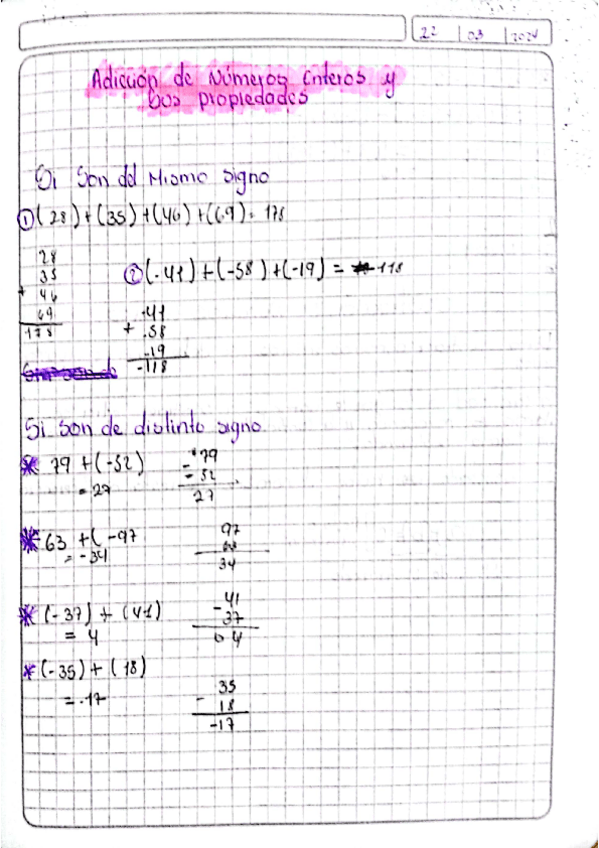 22 | 03 | 2024
Adición de Números Enteros y
sus propiedades
Si Son del Mismo signo
① (28)+(35)+(46)+(69)= 178
28
35
+ 46
69
178
② (-41)+(-58)+(-19) = -118
-41
+ -58
-19
-118
Si son de distinto signo
* 79 +(-52)
= 27
79
- 52
27
* 63 +(-97
= -34
97
63
34
* (-37) + (41)
= 4
41
- 37
04
* (-35) + (18)
= -17
35
- 18
-17